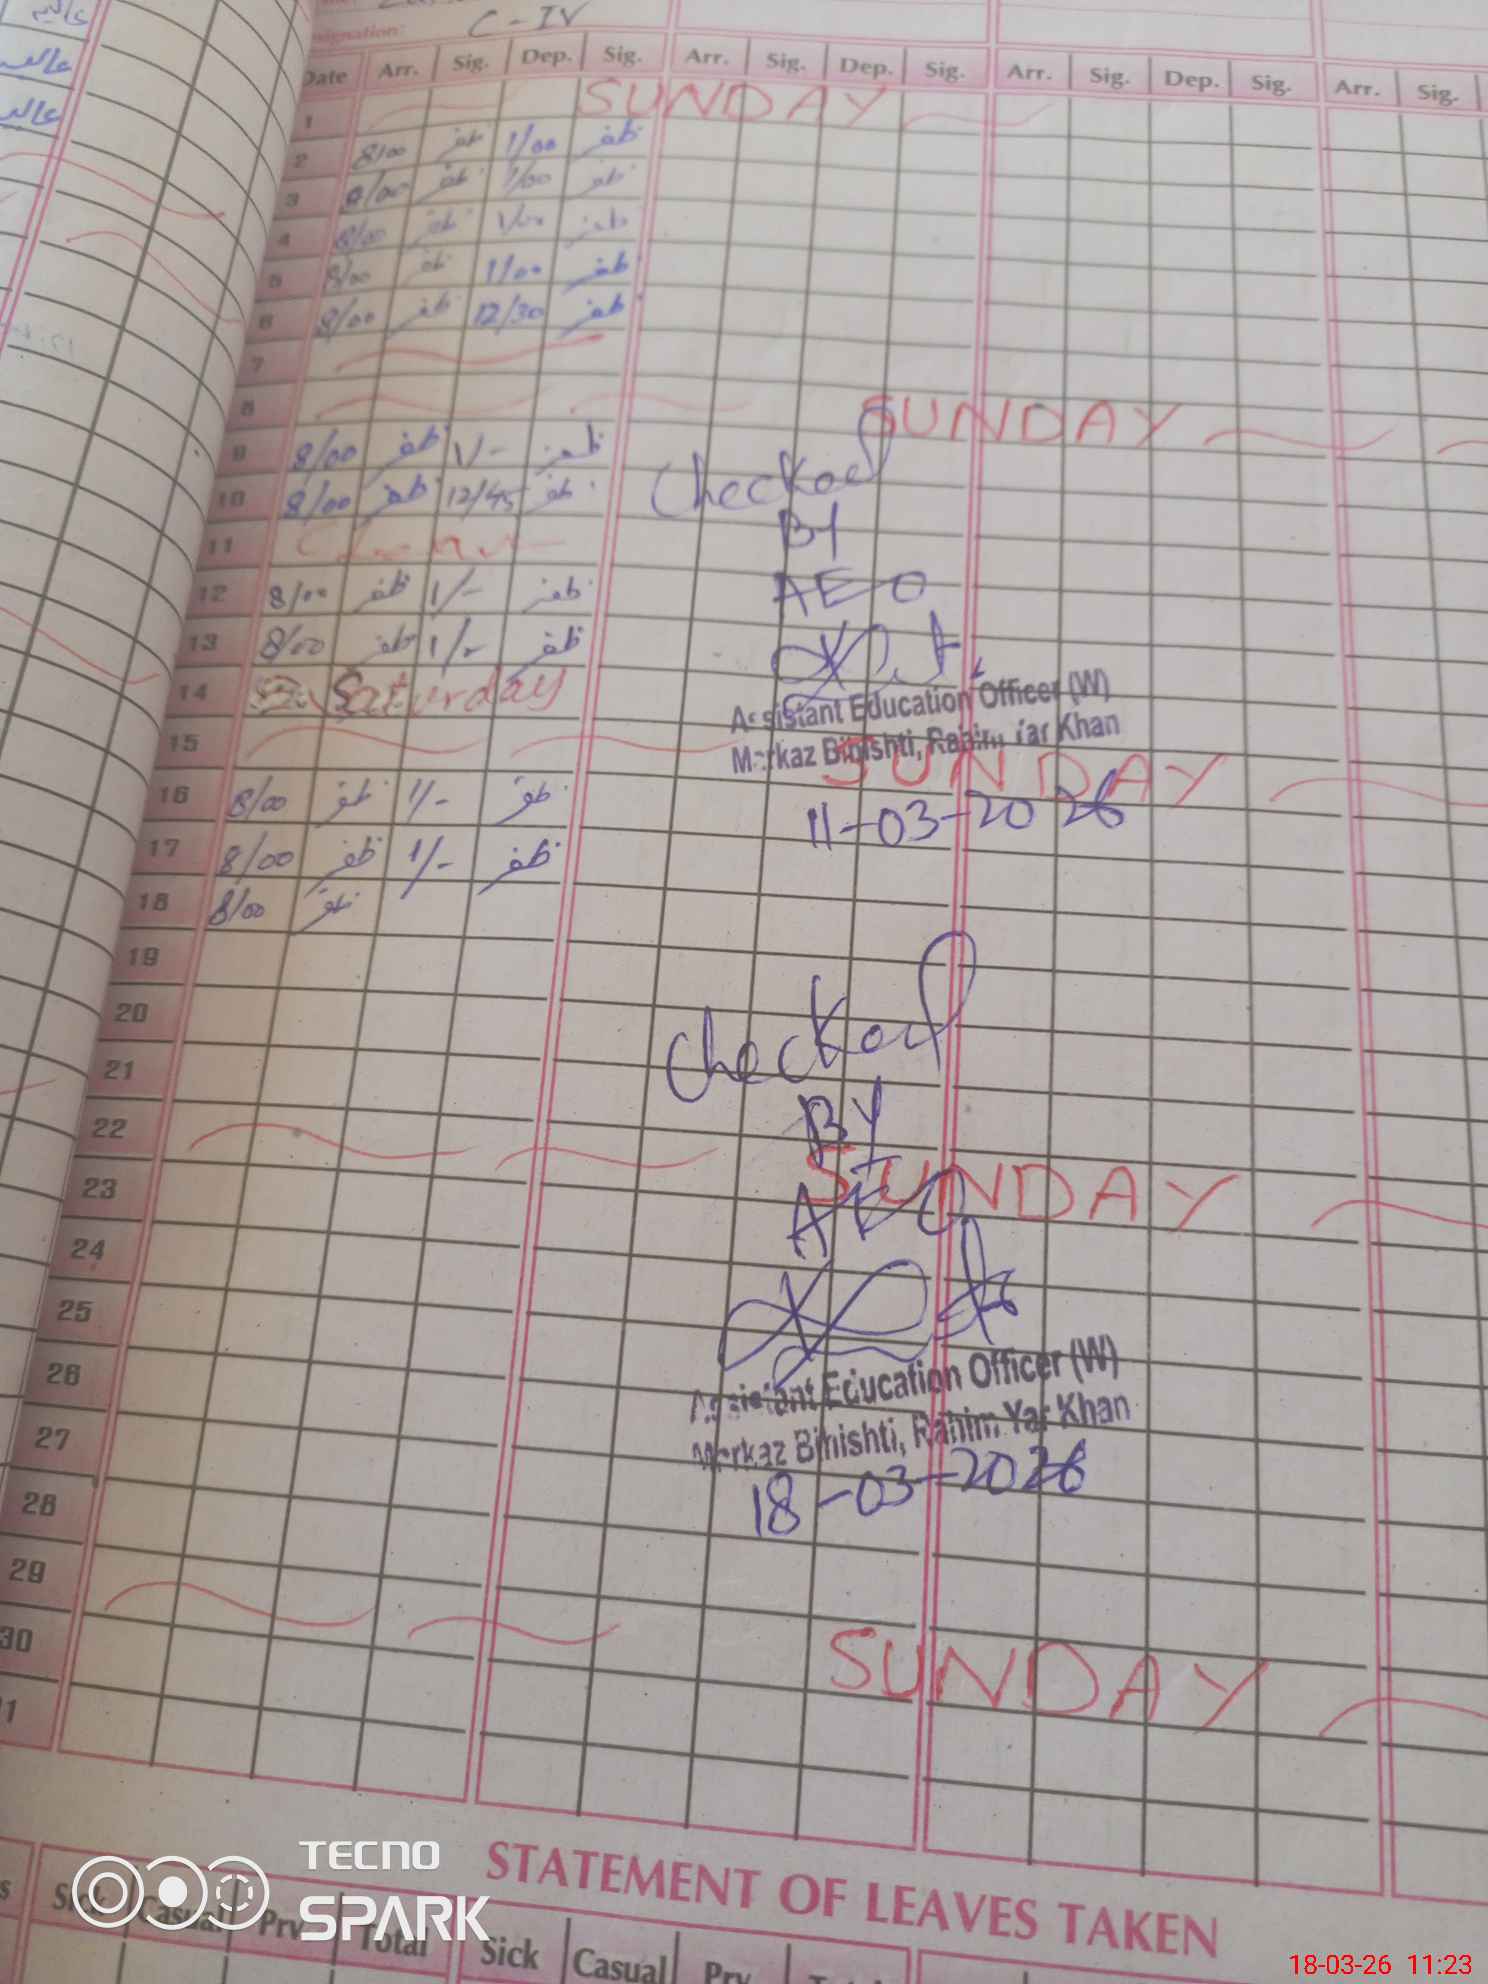 عالیہ
عالیہ
عالیہ
C-IV
Date Arr. Sig. Dep. Sig. Arr. Sig. Dep. Sig. Arr. Sig. Dep. Sig. Arr. Sig.
1 SUNDAY
2 8/00 ظفر 1/00 ظفر
3 8/00 ظفر 1/00 ظفر
4 8/00 ظفر 1/00 ظفر
5 8/00 ظفر 1/00 ظفر
6 8/00 ظفر 12/30 ظفر
7
8 SUNDAY
9 8/00 ظفر 1/- ظفر
10 8/00 ظفر 12/45 ظفر
Checked
11
By
12 8/00 ظفر 1/- ظفر
AEO
13 8/00 ظفر 1/- ظفر
14 Saturday
Assistant Education Officer (W)
Markaz Bihishti, Rahim Yar Khan
15 SUNDAY
16 8/00 ظفر 1/- ظفر
11-03-2026
17 8/00 ظفر 1/- ظفر
18 8/00 ظفر
19
20
Checked
21
By
22 SUNDAY
23
AEO
24
25
26
Assistant Education Officer (W)
Markaz Bihishti, Rahim Yar Khan
27
18-03-2026
28
29 SUNDAY
30
STATEMENT OF LEAVES TAKEN
Sick Casual Prv Total Sick Casual Prv
TECNO
SPARK
18-03-26 11:23